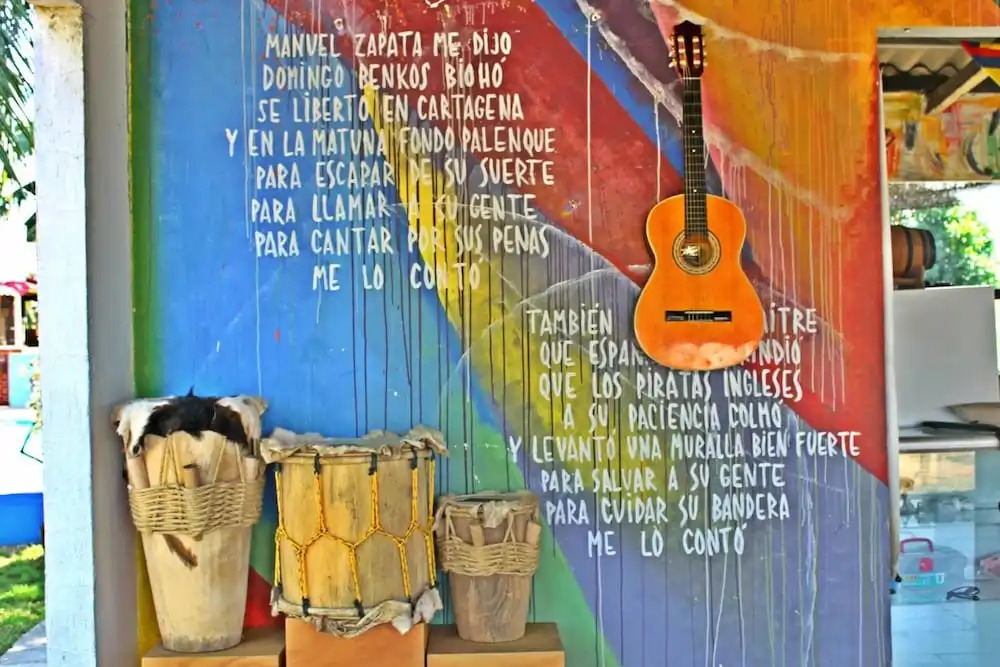 MANUEL ZAPATA ME DIJO
DOMINGO BENKOS BIOHÓ
SE LIBERTÓ EN CARTAGENA
Y EN LA MATUNA FONDO PALENQUE
PARA ESCAPAR DE SU SUERTE
PARA LLAMAR A SU GENTE
PARA CANTAR POR SUS PENAS
ME LO CONTÓ
TAMBIÉN
QUE
QUE LOS PIRATAS INGLESES
A SU PACIENCIA COLMÓ
Y LEVANTÓ UNA MURALLA BIEN FUERTE
PARA SALVAR A SU GENTE
PARA CUIDAR SU BANDERA
ME LO CONTÓ